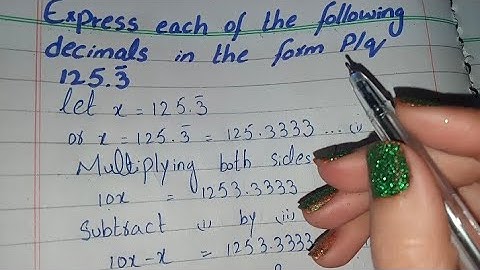 Express each of the following
decimals in the form P/q
125.3̄
let x = 125.3̄
or x = 125.3̄ = 125.3333 ... (i)
Multiplying both sides
10x = 1253.3333
Subtract (i) by (ii)
10x-x = 1253.3333